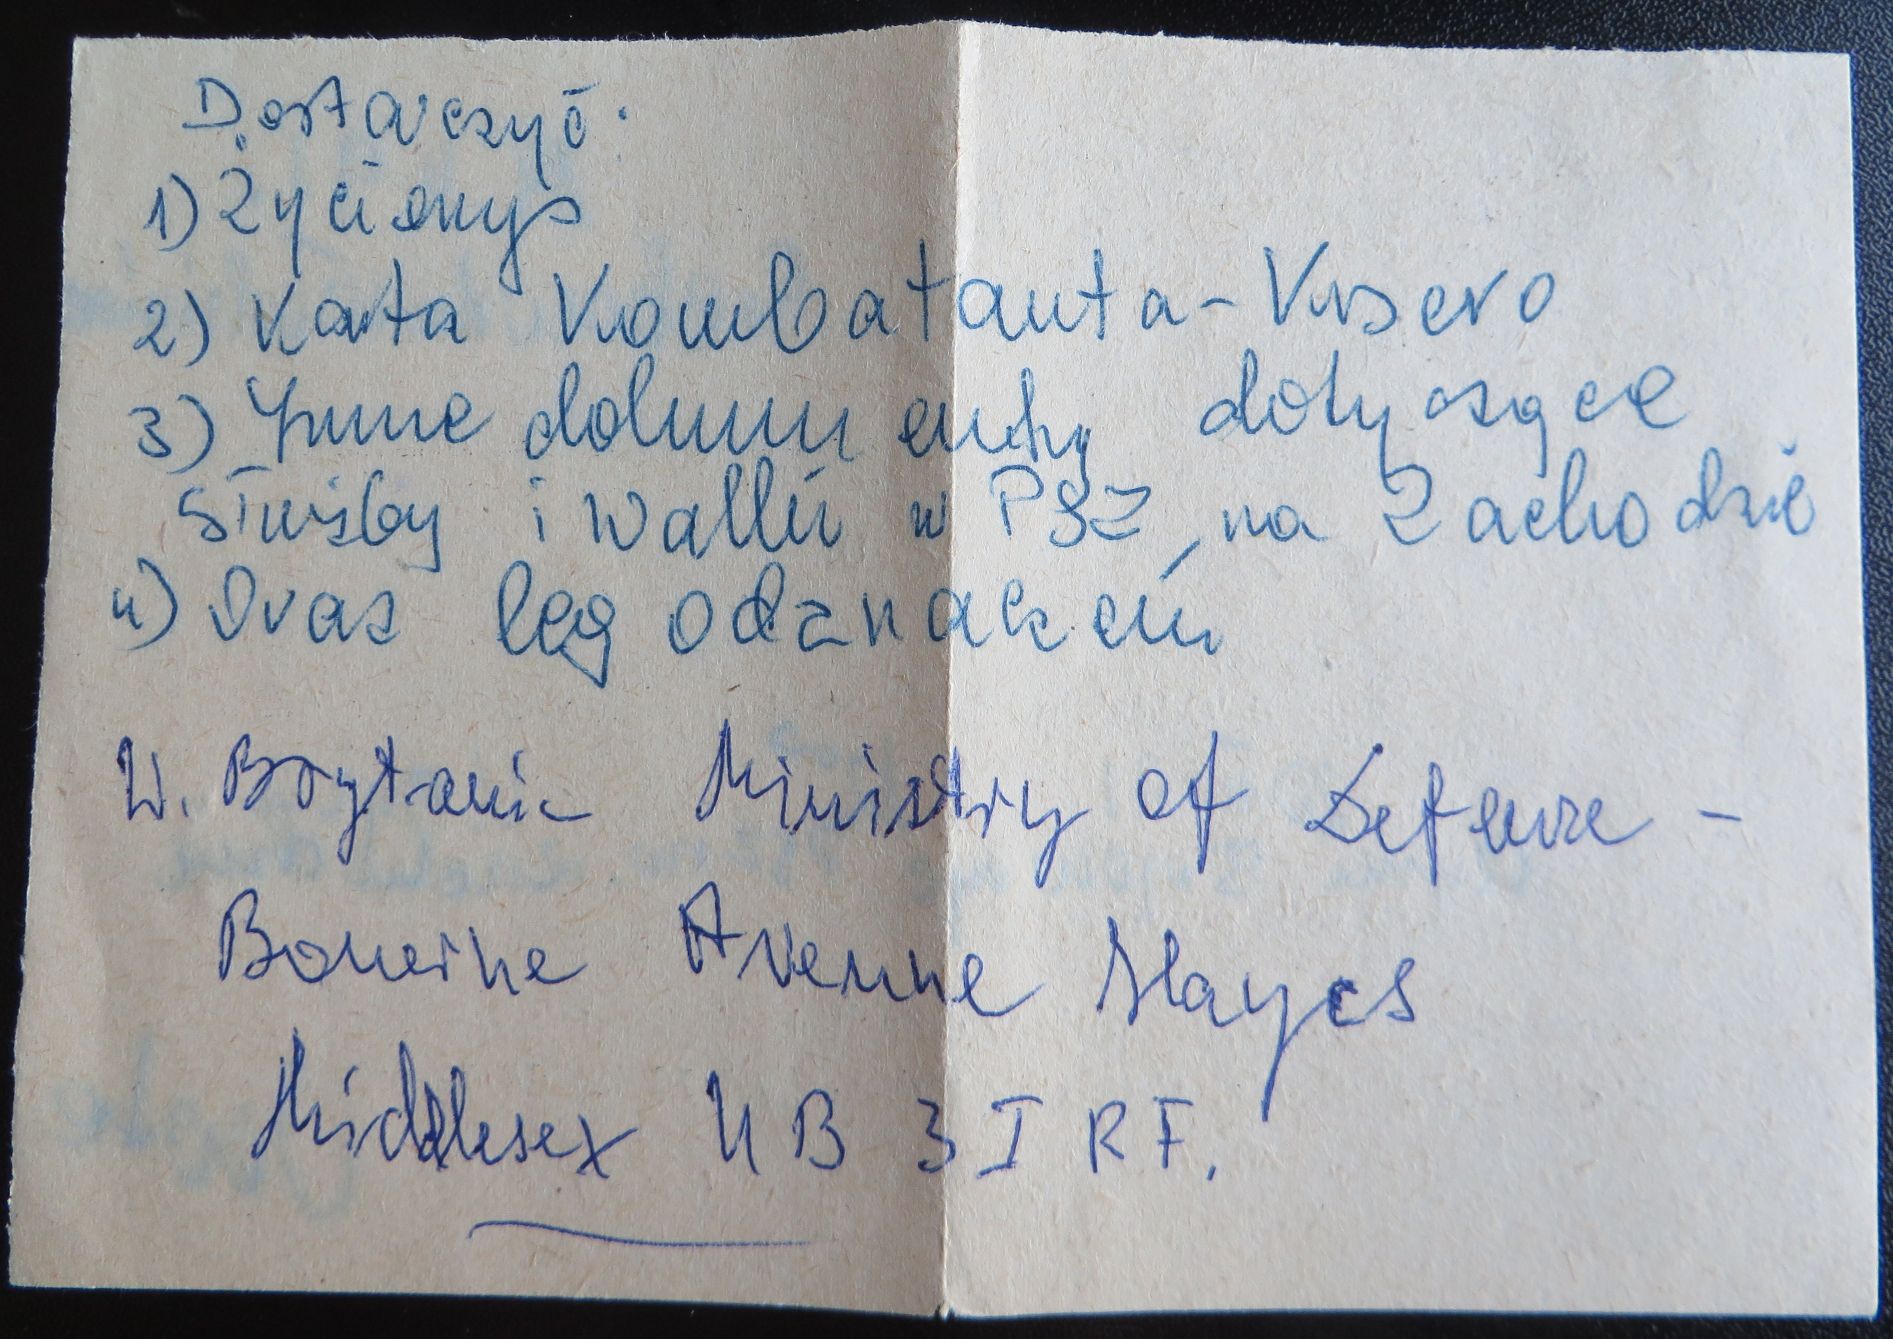 Dostarczyć:
1) Życiorys
2) Karta Kombatanta - Ksero
3) Inne dokumenty dotyczące
służby i walki w PSZ na Zachodzie
4) Oraz leg odznaczeń
W. Brytania Ministry of Defence -
Boureine Avenue Hayes
Middlesex UB 3 I RF.